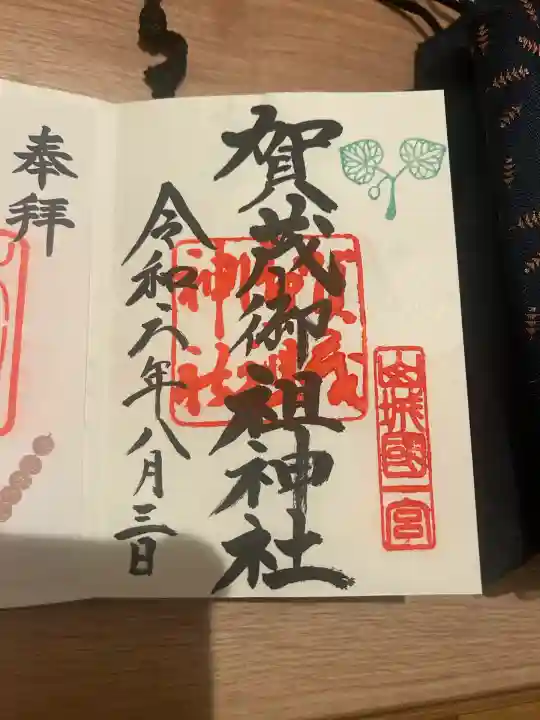 山城國一宮
賀茂御祖神社
賀茂御祖神社
令和六年八月三日
奉拝